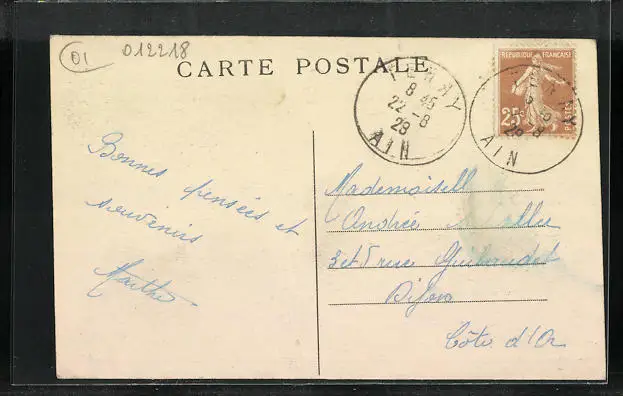 01
012218
CARTE POSTALE
REPUBLIQUE FRANÇAISE
25c
POSTES
TENAY
8 45
22 - 8
28
AIN
TENAY
28
AIN
Bonnes pensées et
souvenirs
Marthe
Mademoisell
Andrée
3 et 5 rue
Dijon
Côte d'Or